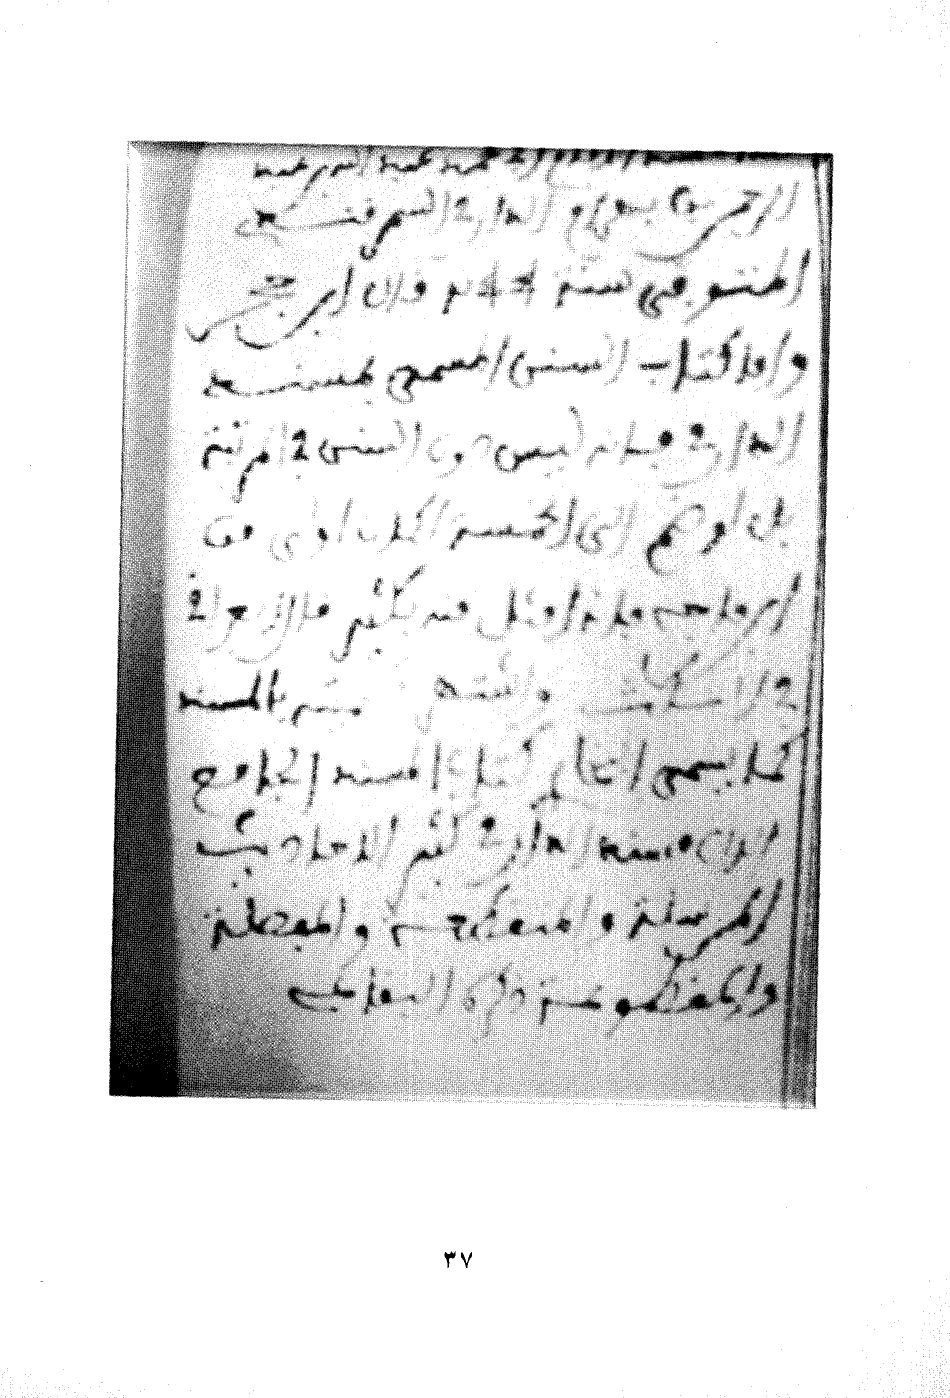 محمد عبد الله بن عبد
الرحمن بن بهرام الدارمي السمرقندي
المتوفى سنة قال ابن حجر
وأما كتاب السنن المسمى بمسند
الدارمي فإنه ليس دون السنن في المرتبة
بل لو ضم إلى الخمسة لكان أولى من
ابن ماجه فإنه أمثل منه بكثير قال العراقي
واشتهر بالمسند
كما يسمى البخاري كتابه المسند الجامع
إلا أن مسند الدارمي كثير الأحاديث
المرسلة والمنقطعة والمعضلة
والمقطوعة ذكره البقاعي
٣٧